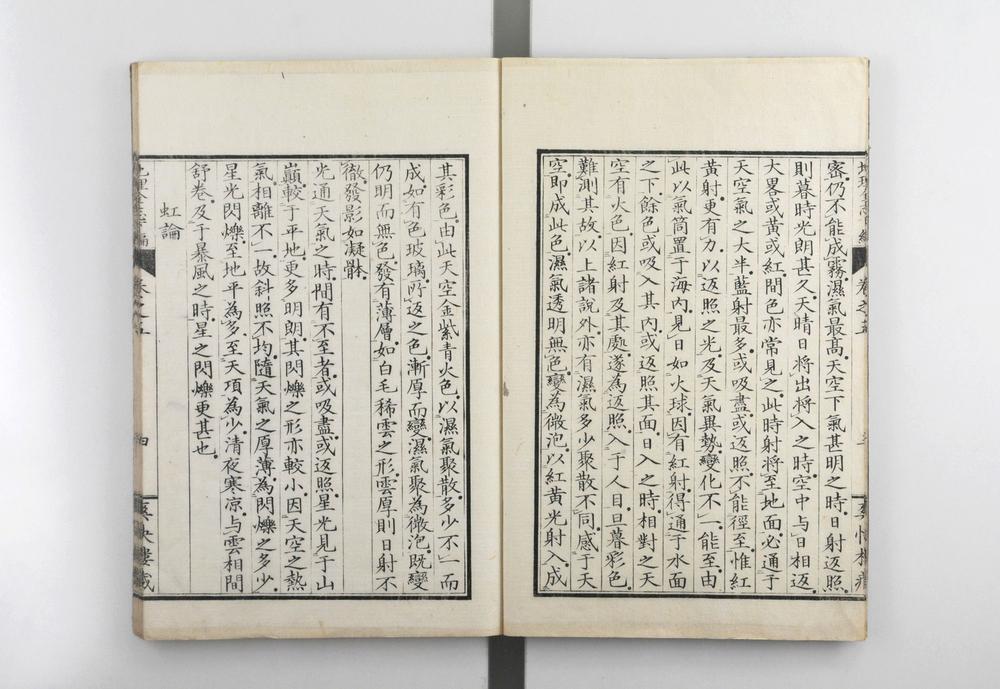 密。仍不能成霧。濕氣最高。天空下氣甚明之時。日射返照。
則暮時光朗甚久。天晴日將出將入之時。空中与日相返。
大畧或黃或紅間色亦常見之。此時射將至地面。必通于
天空氣之大半。藍射最多。或吸盡。或返照。不能徑至。惟紅
黃射。更有力。以返照之光。及天氣異勢。變化不一。能至。由
此以氣筒置于海內。見日如火球。因有紅射。得通于水面
之下。餘色或吸入其內。或返照其面。日入之時。相對之天
空有火色。因紅射及其處。遂為返照。入于人目。旦暮彩色。
難測其故。以上諸說外。亦有濕氣多少聚散不同。感于天
空。即成此色。濕氣透明無色。變為微泡。以紅黃光射入。成
其彩色。由此天空金紫青火色。以濕氣聚散多少不一。而
成如有色玻璃所返之色。漸厚而變。濕氣聚為微泡。既變
仍明而無色。發有薄層。如白毛稀雲之形。雲厚則日射不
徹。發影如凝骵。
光通天氣之時。間有不至者。或吸盡。或返照。星光見于山
巔。較于平地。更多明朗。其閃爍之形亦較小。因天空之熱
氣相離不一。故斜照不均。隨天氣之厚薄。為閃爍之多少。
星光閃爍。至地平為多。至天項為少。清夜寒凉。与雲相間
舒卷。及于暴風之時。星之閃爍更甚也。
虹論
卷之五
四